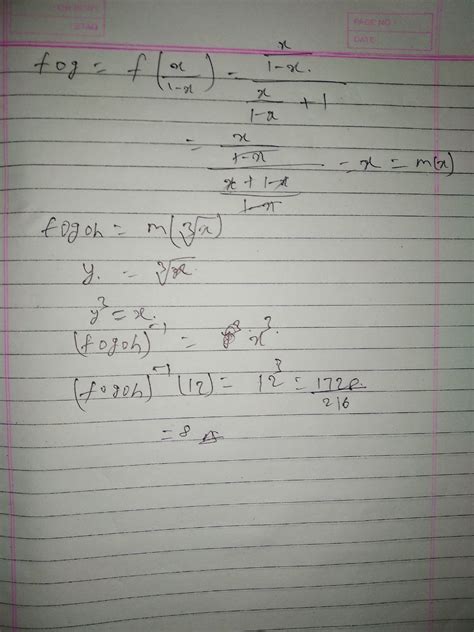 PAGE NO :
DATE :
fog = f(x/(1-x)) = (x/(1-x)) / (x/(1-x) + 1)
= (x/(1-x)) / ((x+1-x)/(1-x)) = x = m(x)
fogoh = m(∛x)
y = ∛x
y³ = x.
(fogoh)⁻¹ = x³.
(fogoh)⁻¹(12) = 12³ = 1728/216
= 8